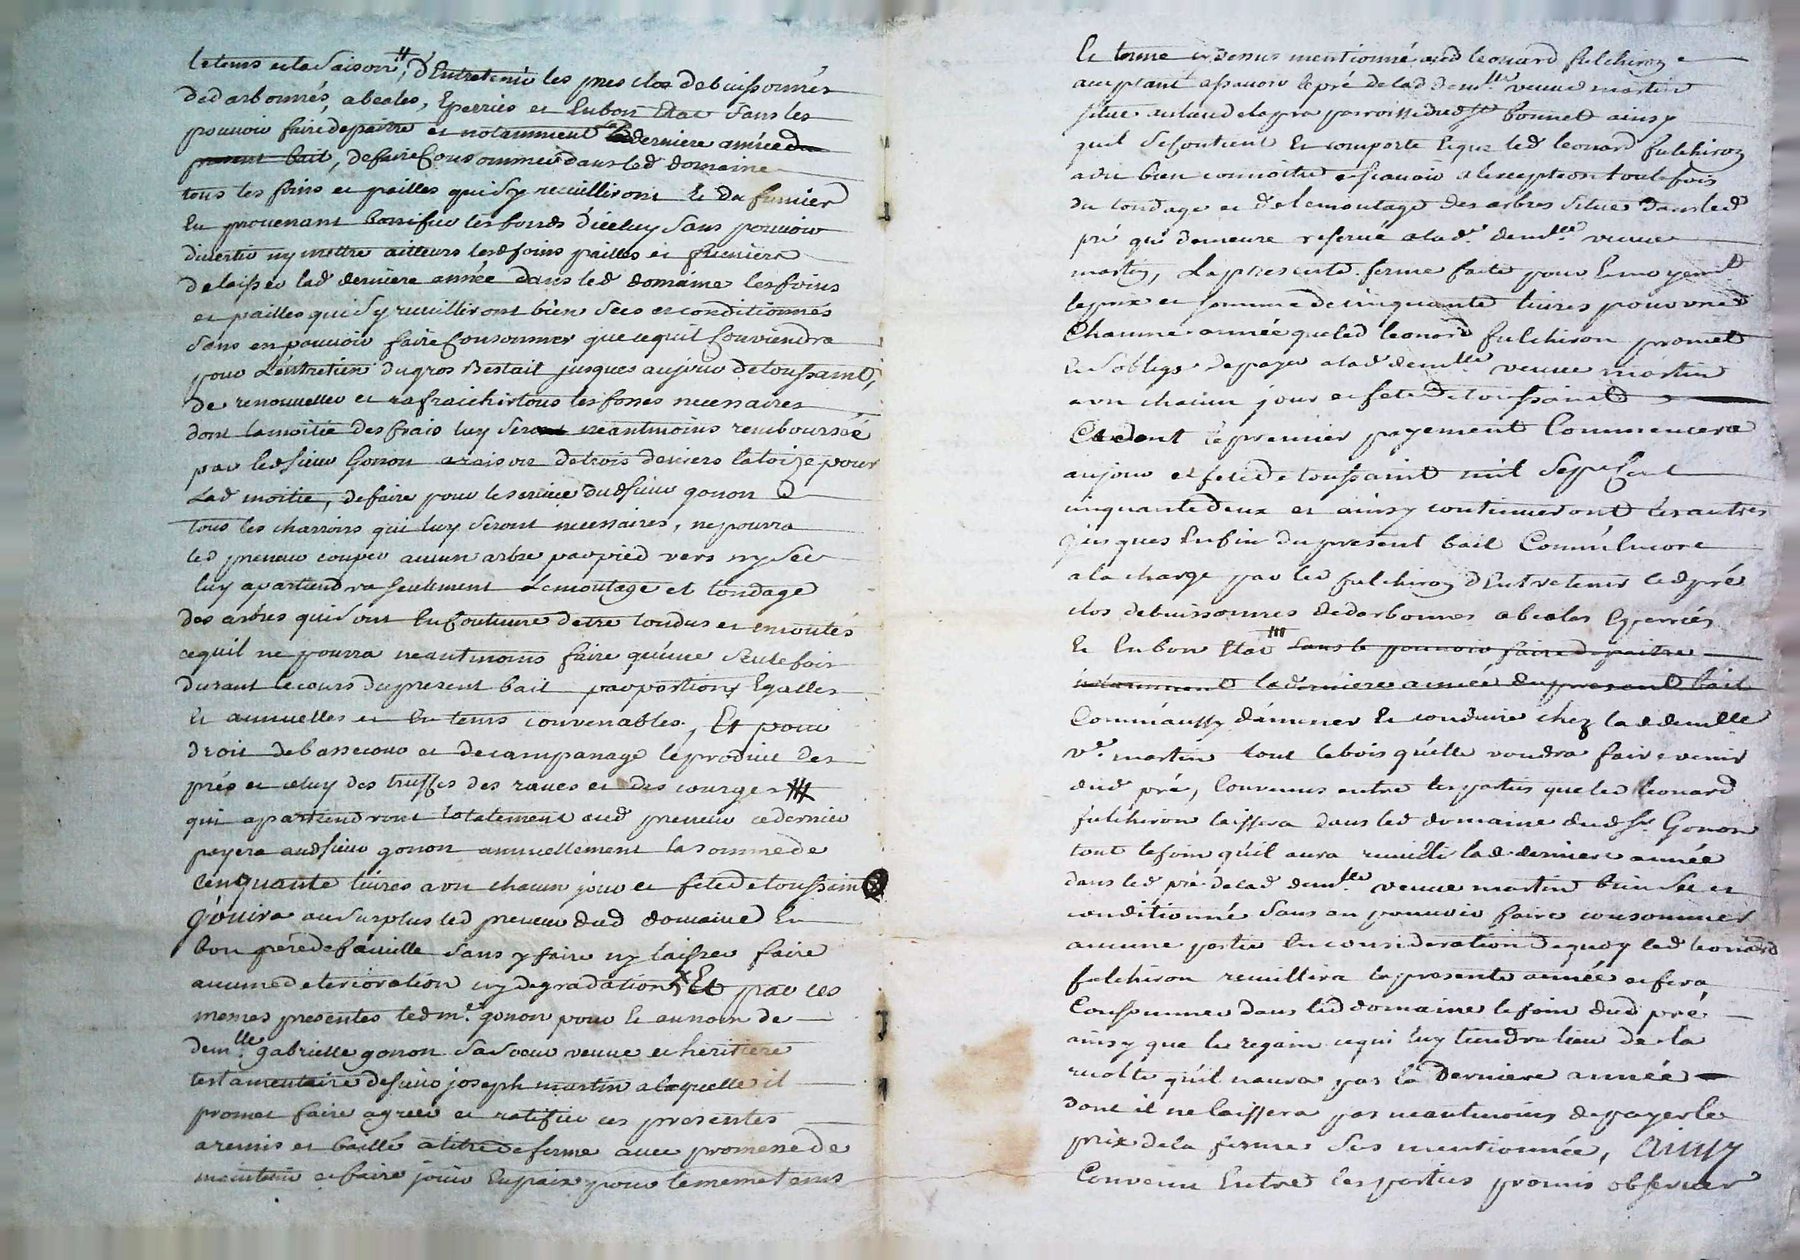 le tems et la saison #, d'Entretenir les pres clos de buissonnés
de darbonnés, abealés, Eperriés et En bon Etat sans les
pouvoir faire depaitre et notamment la derniere année du
present bail, de faire Consommer dans led domaine
tous les foins et pailles qui s'y recuilliront et du fumier
En provenant bonifier les fonds d'iceluy sans pouvoir
divertir ny mettre ailleurs lesd foins pailles et fumiers
delaisser lad derniere année dans led domaine les foins
et pailles qui s'y recuilliront bien secs et conditionnés
sans en pouvoir faire Consommer que ce quil Conviendra
pour L'entretien du gros Bestail jusques au jour de toussaint,
de renouveller et rafraichir tous les fosses necessaires
dont la moitié des frais luy sera neantmoins remboursée
par led sieur Gonon a raison de trois deniers la toize pour
Lad moitié, de faire pour le service dud sieur gonon
tous les charrois qui luy seront necessaires, ne pourra
led preneur couper aucun arbre par pied vers ny sec
luy apartiendra seulement Lemoutage et tondage
des arbres qui sont En Coutume detre tondus et emoutés
ce quil ne pourra neantmoins faire qu'une seule fois
durant le cours du present bail par portions Egalles
Et annuelles et En tems convenables, Et pour
droit de bassecour et de campanage le produit des
prés et celuy des truffes des raves et des courges #
qui apartiendront totalement aud preneur ce dernier
payera aud sieur gonon annuellement la somme de
Cinquante livres a un chacun jour et fete de toussaint
Jouira au surplus led preneur dud domaine En
bon pére de famille sans y faire ny laisser faire
aucune deterioration ny degradation, x Et par ces
memes presentes led mr. gonon pour Et au nom de
demlle. gabrielle gonon sa soeur veuve et heritiere
testamentaire de sieur joseph martin a laquelle il
promet faire agreer et ratifier ces presentes
a remis et baillé a titre de ferme avec promesse de
maintenir et faire jouir En paix pour le meme tems
Et terme cy dessus mentionné aud leonard fulchiron
acceptant assavoir le pré de lad demlle veuve martin
situé au lieu de la pra parroisse dud st bonnet ainsy
quil se Contient Et comporte Et que led leonard fulchiron
a dit bien connoitre et scavoir a l'exception toutefois
du tondage et de lemoutage des arbres situés dans led
pré qui demeure reservé a lad. demlle. veuve
martin, La presente ferme faite pour Et moyennt
le prix et somme de cinquante livres pour une
Chacune année que led leonard fulchiron promet
Et s'oblige de payer a lad demlle veuve martin
a un chacun jour et fete de toussaint
Et dont le premier payement Commencera
au jour et fete de toussaint mil sept Cent
cinquante deux et ainsy continueront les autres
jusques En fin du present bail Comm'Encore
a la charge par led fulchiron d'Entretenir led pré
clos de buissonnés de darbonnes abealés Eperriés
Et En bon Etat # sans le pouvoir faire depaitre
notamment la derniere année du present bail
Comm'aussy d'amener Et conduire chez lad demlle
ve. martin tout le bois qu'elle voudra faire venir
dud pré, Convenus entre les parties que led leonard
fulchiron laissera dans led domaine dud sr. Gonon
tout le foin quil aura recuilli lad derniere année
dans led pré de lad demlle. veuve martin bien sec et
conditionné sans en pouvoir faire consommer
aucune partie En consideration de quoy led leonard
fulchiron recuillira la presente année et fera
Consommer dans led domaine le foin dud pré
ainsy que le regain ce qui luy tiendra lieu de la
recolte quil n'aura pas la Derniere année
dont il ne laissera pas neantmoins de payer le
prix de la ferme sus mentionnée, Ainsy
Convenu Entre les parties promis observer